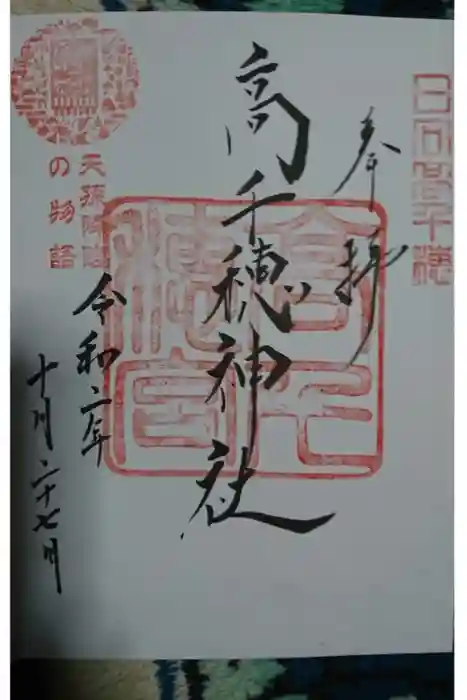 日向高千穂
奉拝
高千穂神社
高千穂宮
天孫降臨
の物語
令和二年
十月二十七日